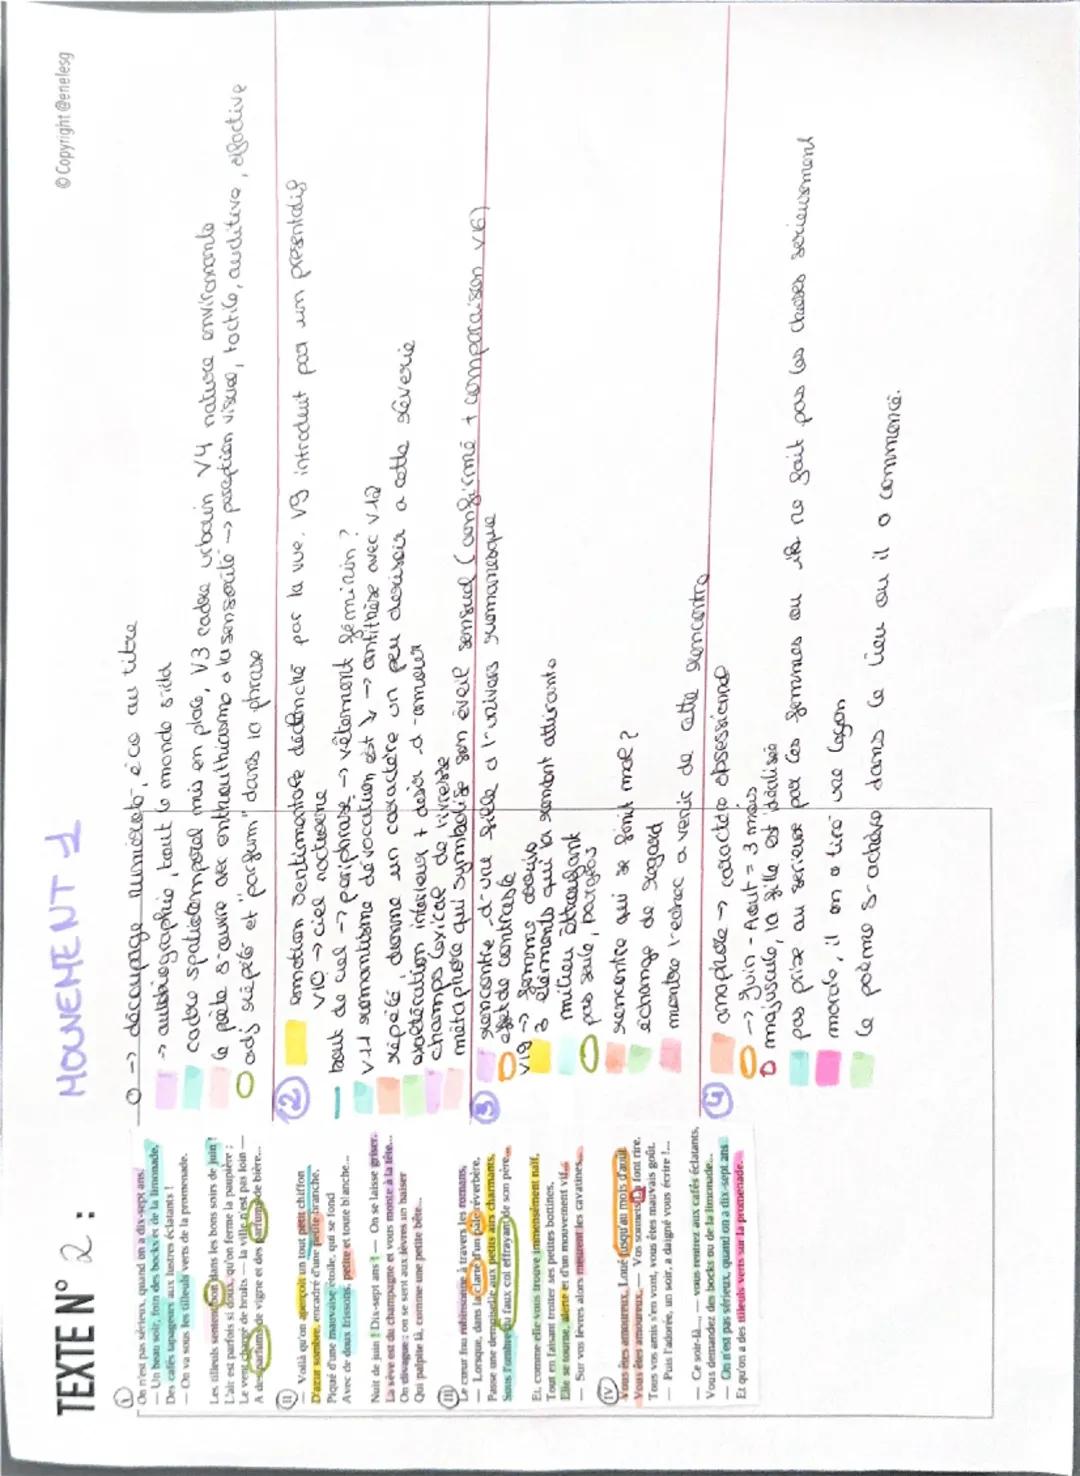 © Copyright @enelesg
TEXTE N° 2 : MOUVEMENT 1
I
On n'est pas sérieux, quand on a dix-sept ans.
— Un beau soir, foin des bocks et de la limonade,
Des cafés tapageurs aux lustres éclatants !
— On va sous les tilleuls verts de la promenade.
Les tilleuls sentent bon dans les bons soirs de juin !
L'air est parfois si doux, qu'on ferme la paupière ;
Le vent chargé de bruits — la ville n'est pas loin —
A des parfums de vigne et des parfums de bière...
II
— Voilà qu'on aperçoit un tout petit chiffon
D'azur sombre, encadré d'une petite branche,
Piqué d'une mauvaise étoile, qui se fond
Avec de doux frissons, petite et toute blanche...
Nuit de juin ! Dix-sept ans ! — On se laisse griser.
La sève est du champagne et vous monte à la tête...
On divague ; on se sent aux lèvres un baiser
Qui palpite là, comme une petite bête...
III
Le cœur fou robinsonne à travers les romans,
— Lorsque, dans la clarté d'un pâle réverbère,
Passe une demoiselle aux petits airs charmants,
Sous l'ombre du faux col effrayant de son père...
Et, comme elle vous trouve immensément naïf,
Tout en faisant trotter ses petites bottines,
Elle se tourne, alerte et d'un mouvement vif...
— Sur vos lèvres alors meurent les cavatines...
IV
Vous êtes amoureux. Loué jusqu'au mois d'août.
Vous êtes amoureux. — Vos sonnets La font rire.
Tous vos amis s'en vont, vous êtes mauvais goût.
— Puis l'adorée, un soir, a daigné vous écrire !...
— Ce soir-là,... — vous rentrez aux cafés éclatants,
Vous demandez des bocks ou de la limonade...
— On n'est pas sérieux, quand on a dix-sept ans
Et qu'on a des tilleuls verts sur la promenade.
→ découpage numéroté, éco au titre
→ autobiographie, tout le monde s'idd
cadre spatiotemporel mis en place, V3 cadre urbain V4 nature environnante
le poète s'ouvre avec enthouthiasme a la sensorité → perception visuel, tactile, auditive, olfactive
adj répété et "parfum" dans la phrase
2 emotion sentimentale déclenché par la vue. V9 introduit par un presentatif
V10 → ciel nocturne
bout de ciel → periphrase → vêtement féminin ?
V11 romantisme d'évocation est → antithèse avec V12
répété, donne un caractère un peu derisoir a cette rêverie
exaltération intérieur + désir d'amour
champs lexical de l'ivresse
métaphore qui symbolise son éveil sensuel (confirmé + comparaison V16)
3 rencontre d'une fille a l'univers romanesque
effet de contraste
V19 → femme
3 éléments qui la rendent attirante
milieu
pas seule, parfois
rencontre qui se finit mal ?
échange de regard
montre l'echec a venir de cette rencontre
4 anaphore → caractère obsessionnel
→ Juin - Aout = 3 mois
majuscule, la fille est idéalisée
pas prise au serieux par les femmes ou ils ne fait pas les choses serieusement
morale, il en a tiré une leçon
le poème s'achève dans le lieu ou il a commencé.